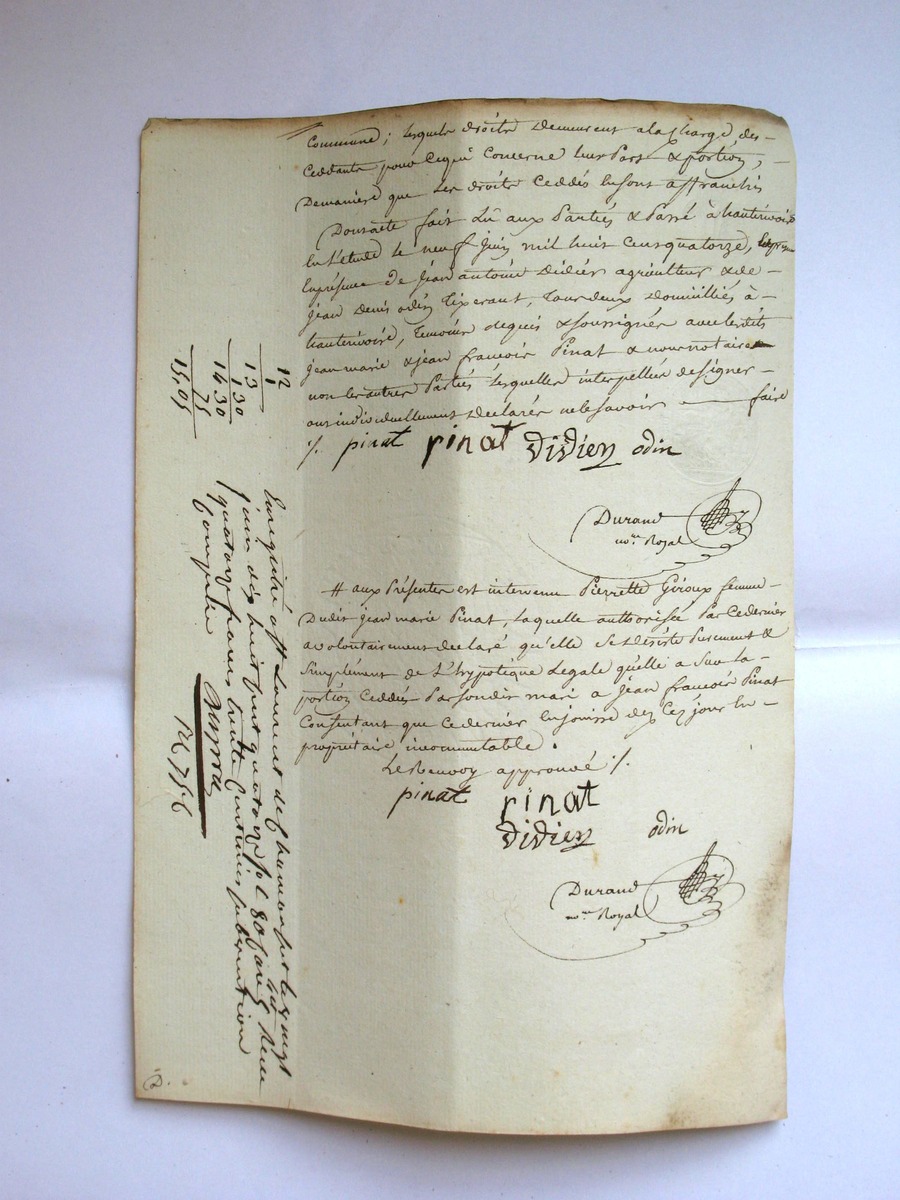 Commune; lesquels droits demeurent a la Charge des
Ceddants pour Cequi Concerne leur Part & portion,
Demaniere que Les droits Ceddés En sont affranchis
Dont acte fait Lû aux Parties & Passé à hauterivoire
En L'etude le neuf Juin mil huit Cent quatorze,
Enpresence de Jean antoine Didier agriculteur & de
Jean Denis odin Tixerant, Tous deux Domiciliés à
hauterivoire, Temoins requis & soussignés avec lesdits
Jean marie & jean francois Pinat & nous notaire
non les autres Parties Lesquelles interpellés de signer
ont individuellement declarés ne le savoir faire
./. pinat pinat didier odin
Durand
nore Royal
# aux Présentes est intervenu Pierrette Giroux femme
Dudit Jean marie Pinat, Laquelle authorisée Par Cedernier
a volontairement declaré qu'elle se désiste Purement &
Simplément de L'hypotèque Legale qu'elle a Sur la
portion Ceddée Par sondit mari a Jean francois Pinat
Consentant que Cedernier En jouisse dez Cejour En
propriétaire incommutable.
Le Renvoy approuvé ./.
pinat pinat
didier odin
Durand
nore Royal
12
1
13
1.30
14.30
75
15.05
Enregistré à St Laurent de Chamousset le vingt
juin dix huit cent quatorze fol 80 Reçu
quatorze francs trente Centimes subvention
Comprise
D.